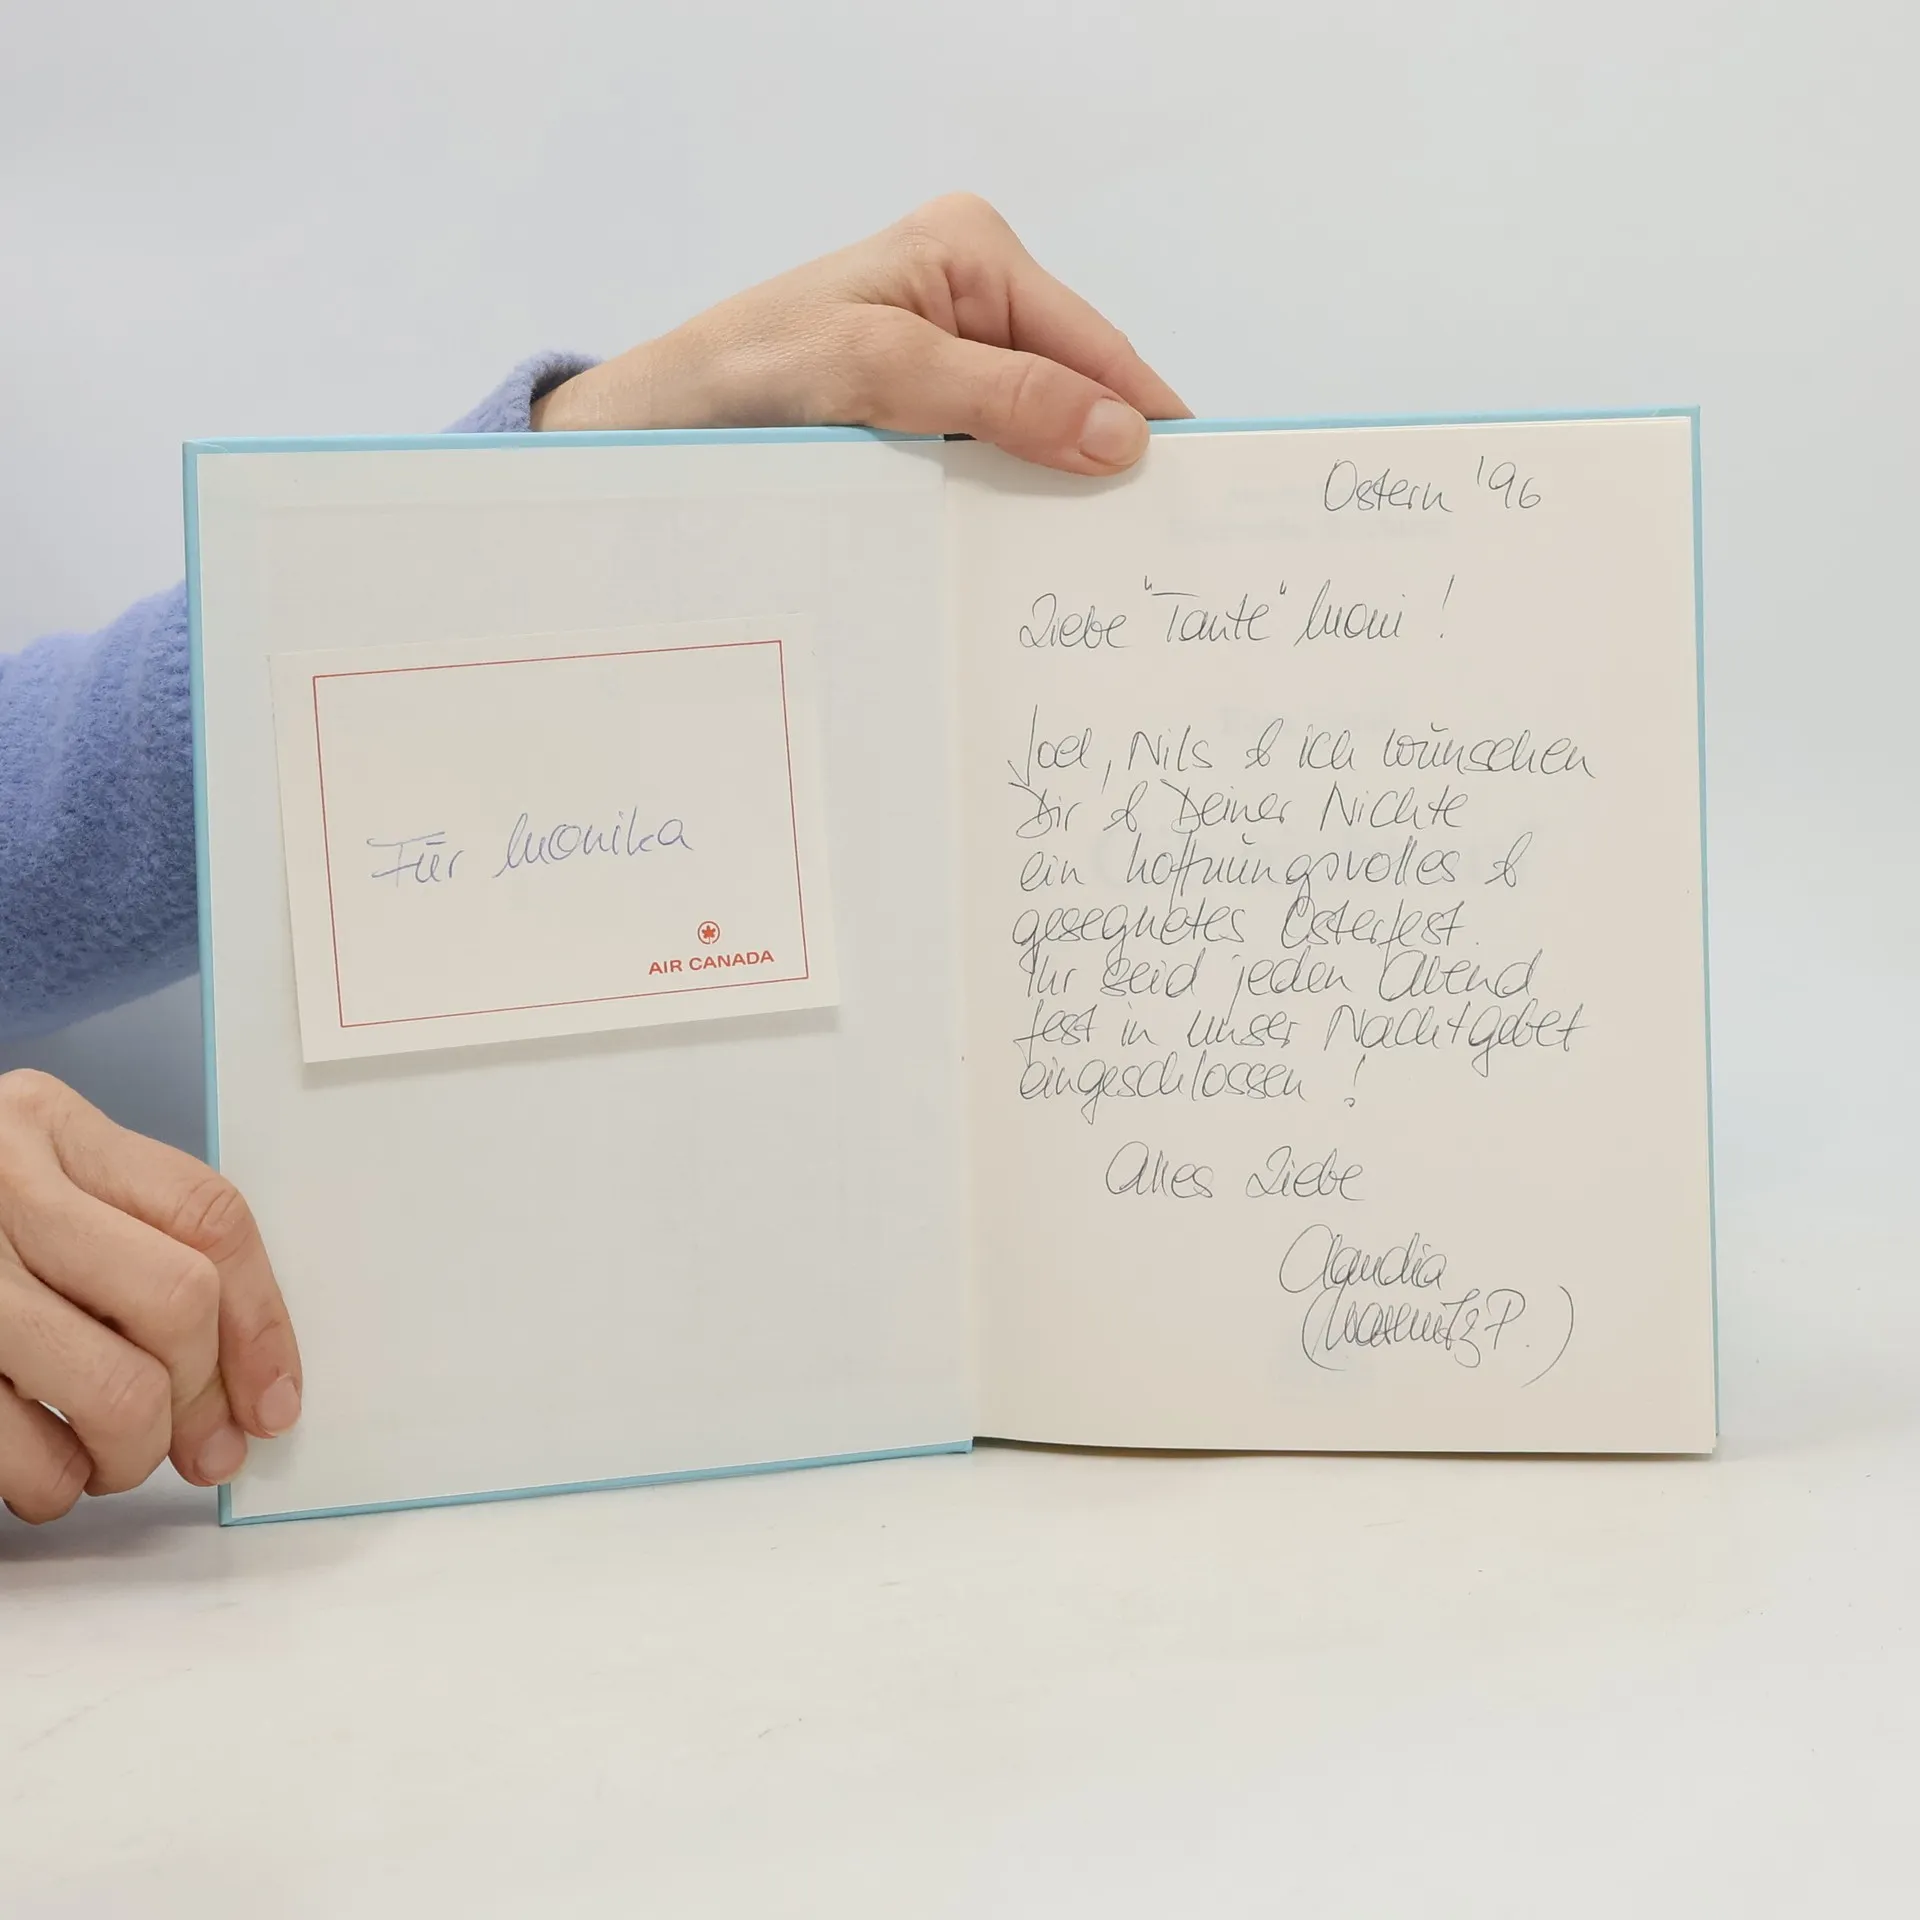 Für Monika
AIR CANADA
Ostern '96
Liebe "Tante" Moni!
Joel, Nils & ich wünschen
Dir & Deiner Nichte
ein hoffnungsvolles &
gesegnetes Osterfest.
Ihr seid jeden Abend
fest in unser Nachtgebet
eingeschlossen!
Alles Liebe
Claudia
P.